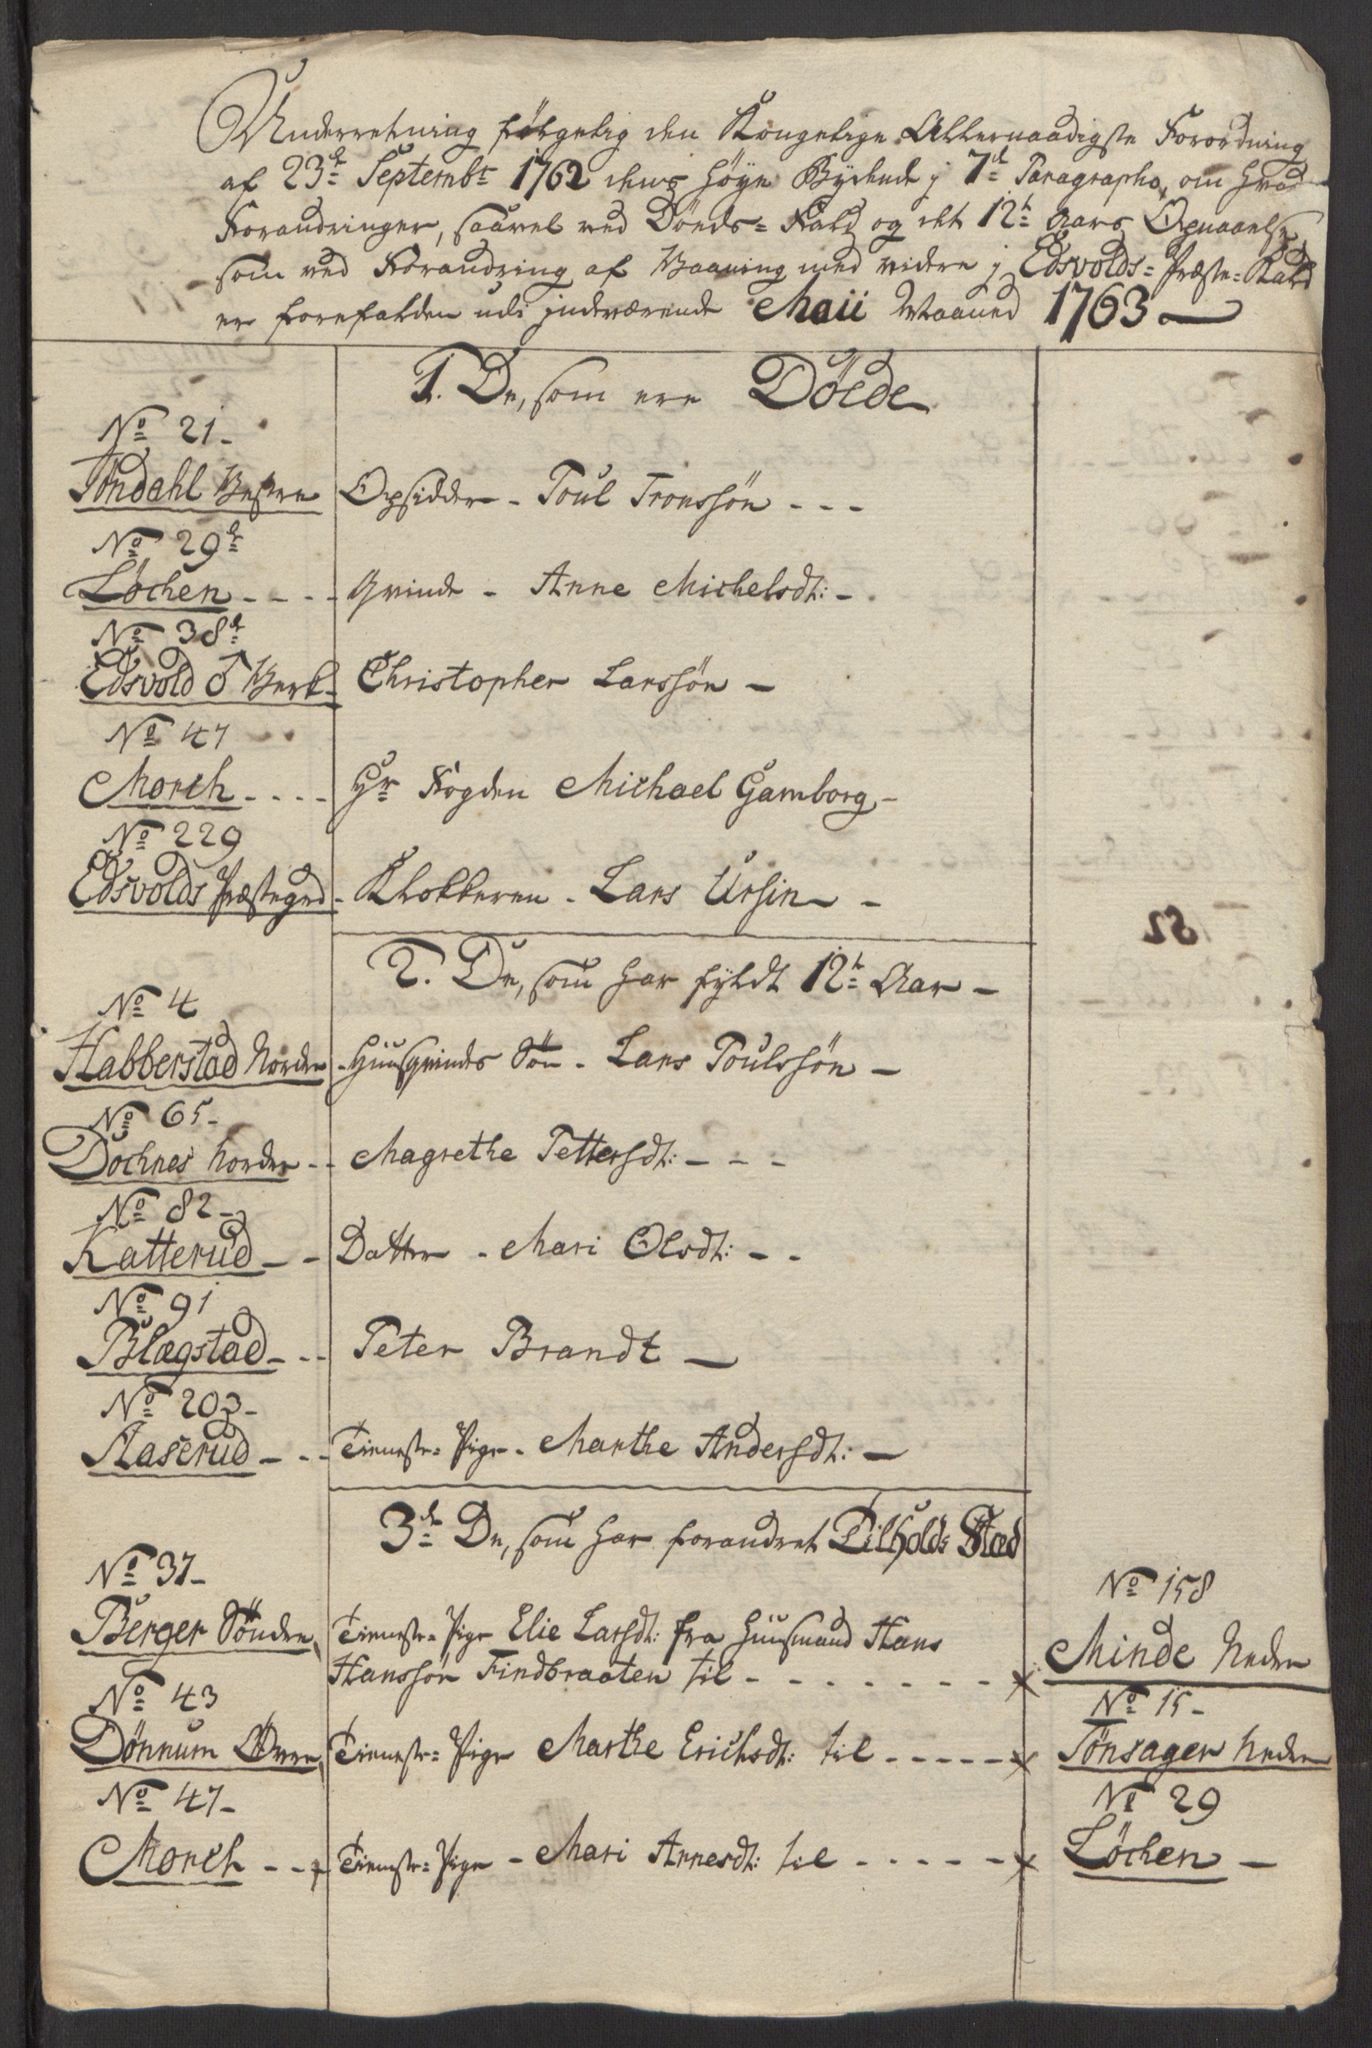 Underretning følgelig den Kongelige Allernaadigste Forordning
af 23de Septembr 1762 dens høye Bydende j 7de Paragrapho, om hvad
Forandringer, saavel ved Döeds=Fald og det 12te Aars Opnaaelse
som ved Forandring af Vaaning med videre j Edsvolds=Præste=Kald
er forefalden udi jndværende Maii Maaned 1763
1. De, som ere Döede
No 21
Töndahl Vestre Opsidder - Poul Tronssön
No 29de
Löchen Qvinde - Anne Michelsdt:
No 38de
Edsvold ♂ Verk Christopher Larssön
No 47
Morch Hr Fogden Michael Gamborg
No 229
Edsvolds Præstegrd Klokkeren - Lars Ursin
2. De, som har fyldt 12te Aar
No 4
Habberstad Nordre Huusqvinds Sön - Lars Poulssön
No 65
Dochnes Nordre Magrethe Pettersdt:
No 82
Katterud Datter - Mari Olsdt:
No 91
Blegstad Peter Brandt
No 203
Haserud Tieneste=Pige - Marthe Andersdt:
3de De, som har forandret Tilholds Stæd
No 37 No 158
Berger Söndre Tieneste=Pige Elie Larsdt: fra Huusmand Hans
Hanssön Findbraaten til Minde Nedre
No 43 No 15
Dönnum Övre Tieneste=Pige Marthe Erichsdt: til Tönsager Nedre
No 47 No 29
Morch Tieneste=Pige - Mari Arnesdt: til Löchen